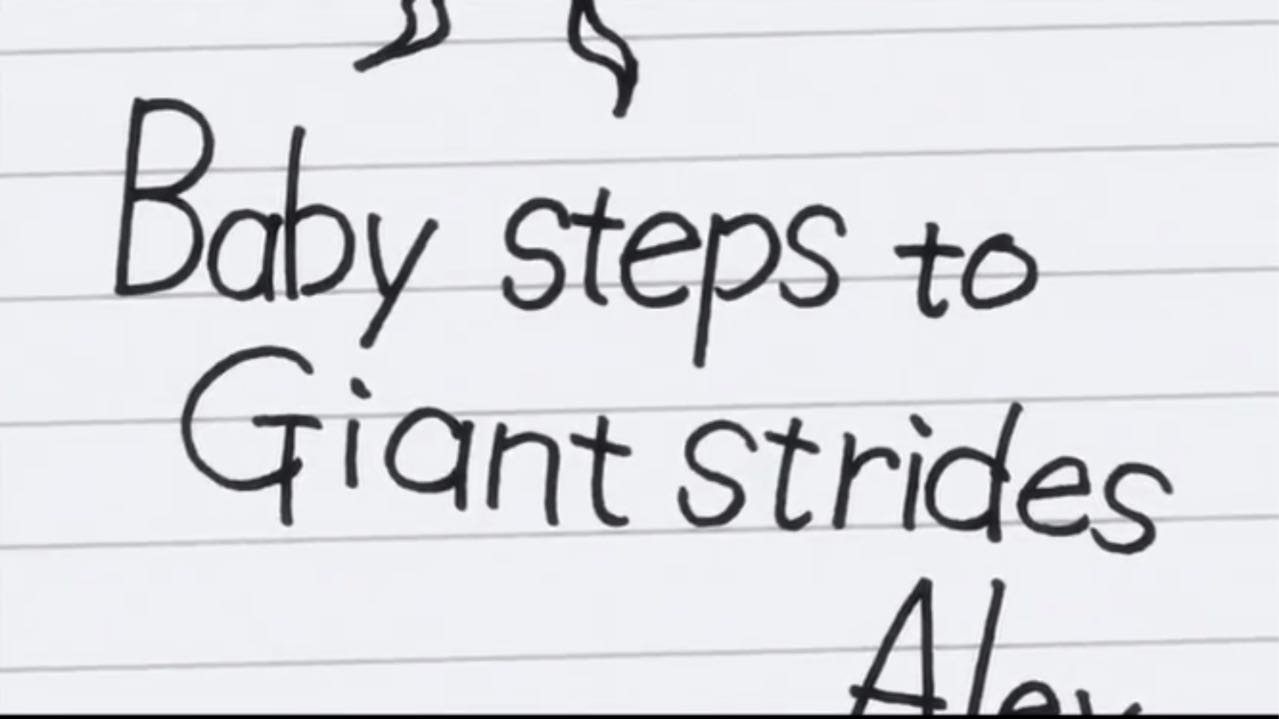 Baby steps to
Giant strides